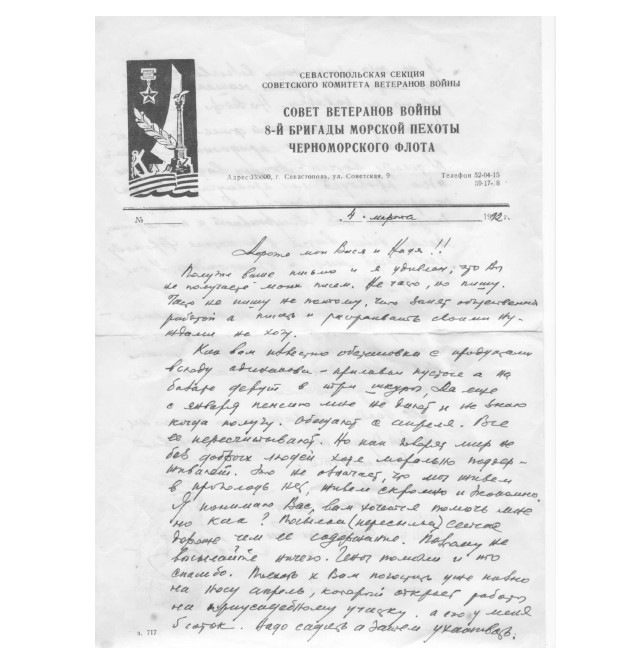 СЕВАСТОПОЛЬСКАЯ СЕКЦИЯ
СОВЕТСКОГО КОМИТЕТА ВЕТЕРАНОВ ВОЙНЫ
СОВЕТ ВЕТЕРАНОВ ВОЙНЫ
8-Й БРИГАДЫ МОРСКОЙ ПЕХОТЫ
ЧЕРНОМОРСКОГО ФЛОТА
Адрес: 335000, г. Севастополь, ул. Советская, 9 Телефон 52-04-15
№ 4 . марта 1992 г.
Дорогие мои Вася и Надя!!
Получил ваше письмо и я удивлен, что Вы
не получаете моих писем. Не часто, но пишу.
Часто не пишу не потому, что занят общественной
работой а писать и расстраивать своими ну-
ждами не хочу.
Как вам известно обстановка с продуктами
всюду одинакова - прилавки пустые а на
базаре дерут в три шкуры, Да еще
с января пенсию мне не дают и не знаю
когда получу. Обещают с апреля. Все
её пересчитывают. Но как говорят мир не
без добрых людей хотя морально поддер-
живают. Это не означает, что мы живем
в проголодь нет, живем скромно и экономно.
Я понимаю Вас, вам хочется помочь мне
но как? Посылка (пересылка) сейчас
дороже чем её содержание. Поэтому не
высылайте ничего. Цены поняли и то
спасибо. Поехать к Вам погостить уже
на носу апрель, который откроет работу
на приусадебному участку, а его у меня
5 соток. Надо садить а затем ухаживать.
з. 717